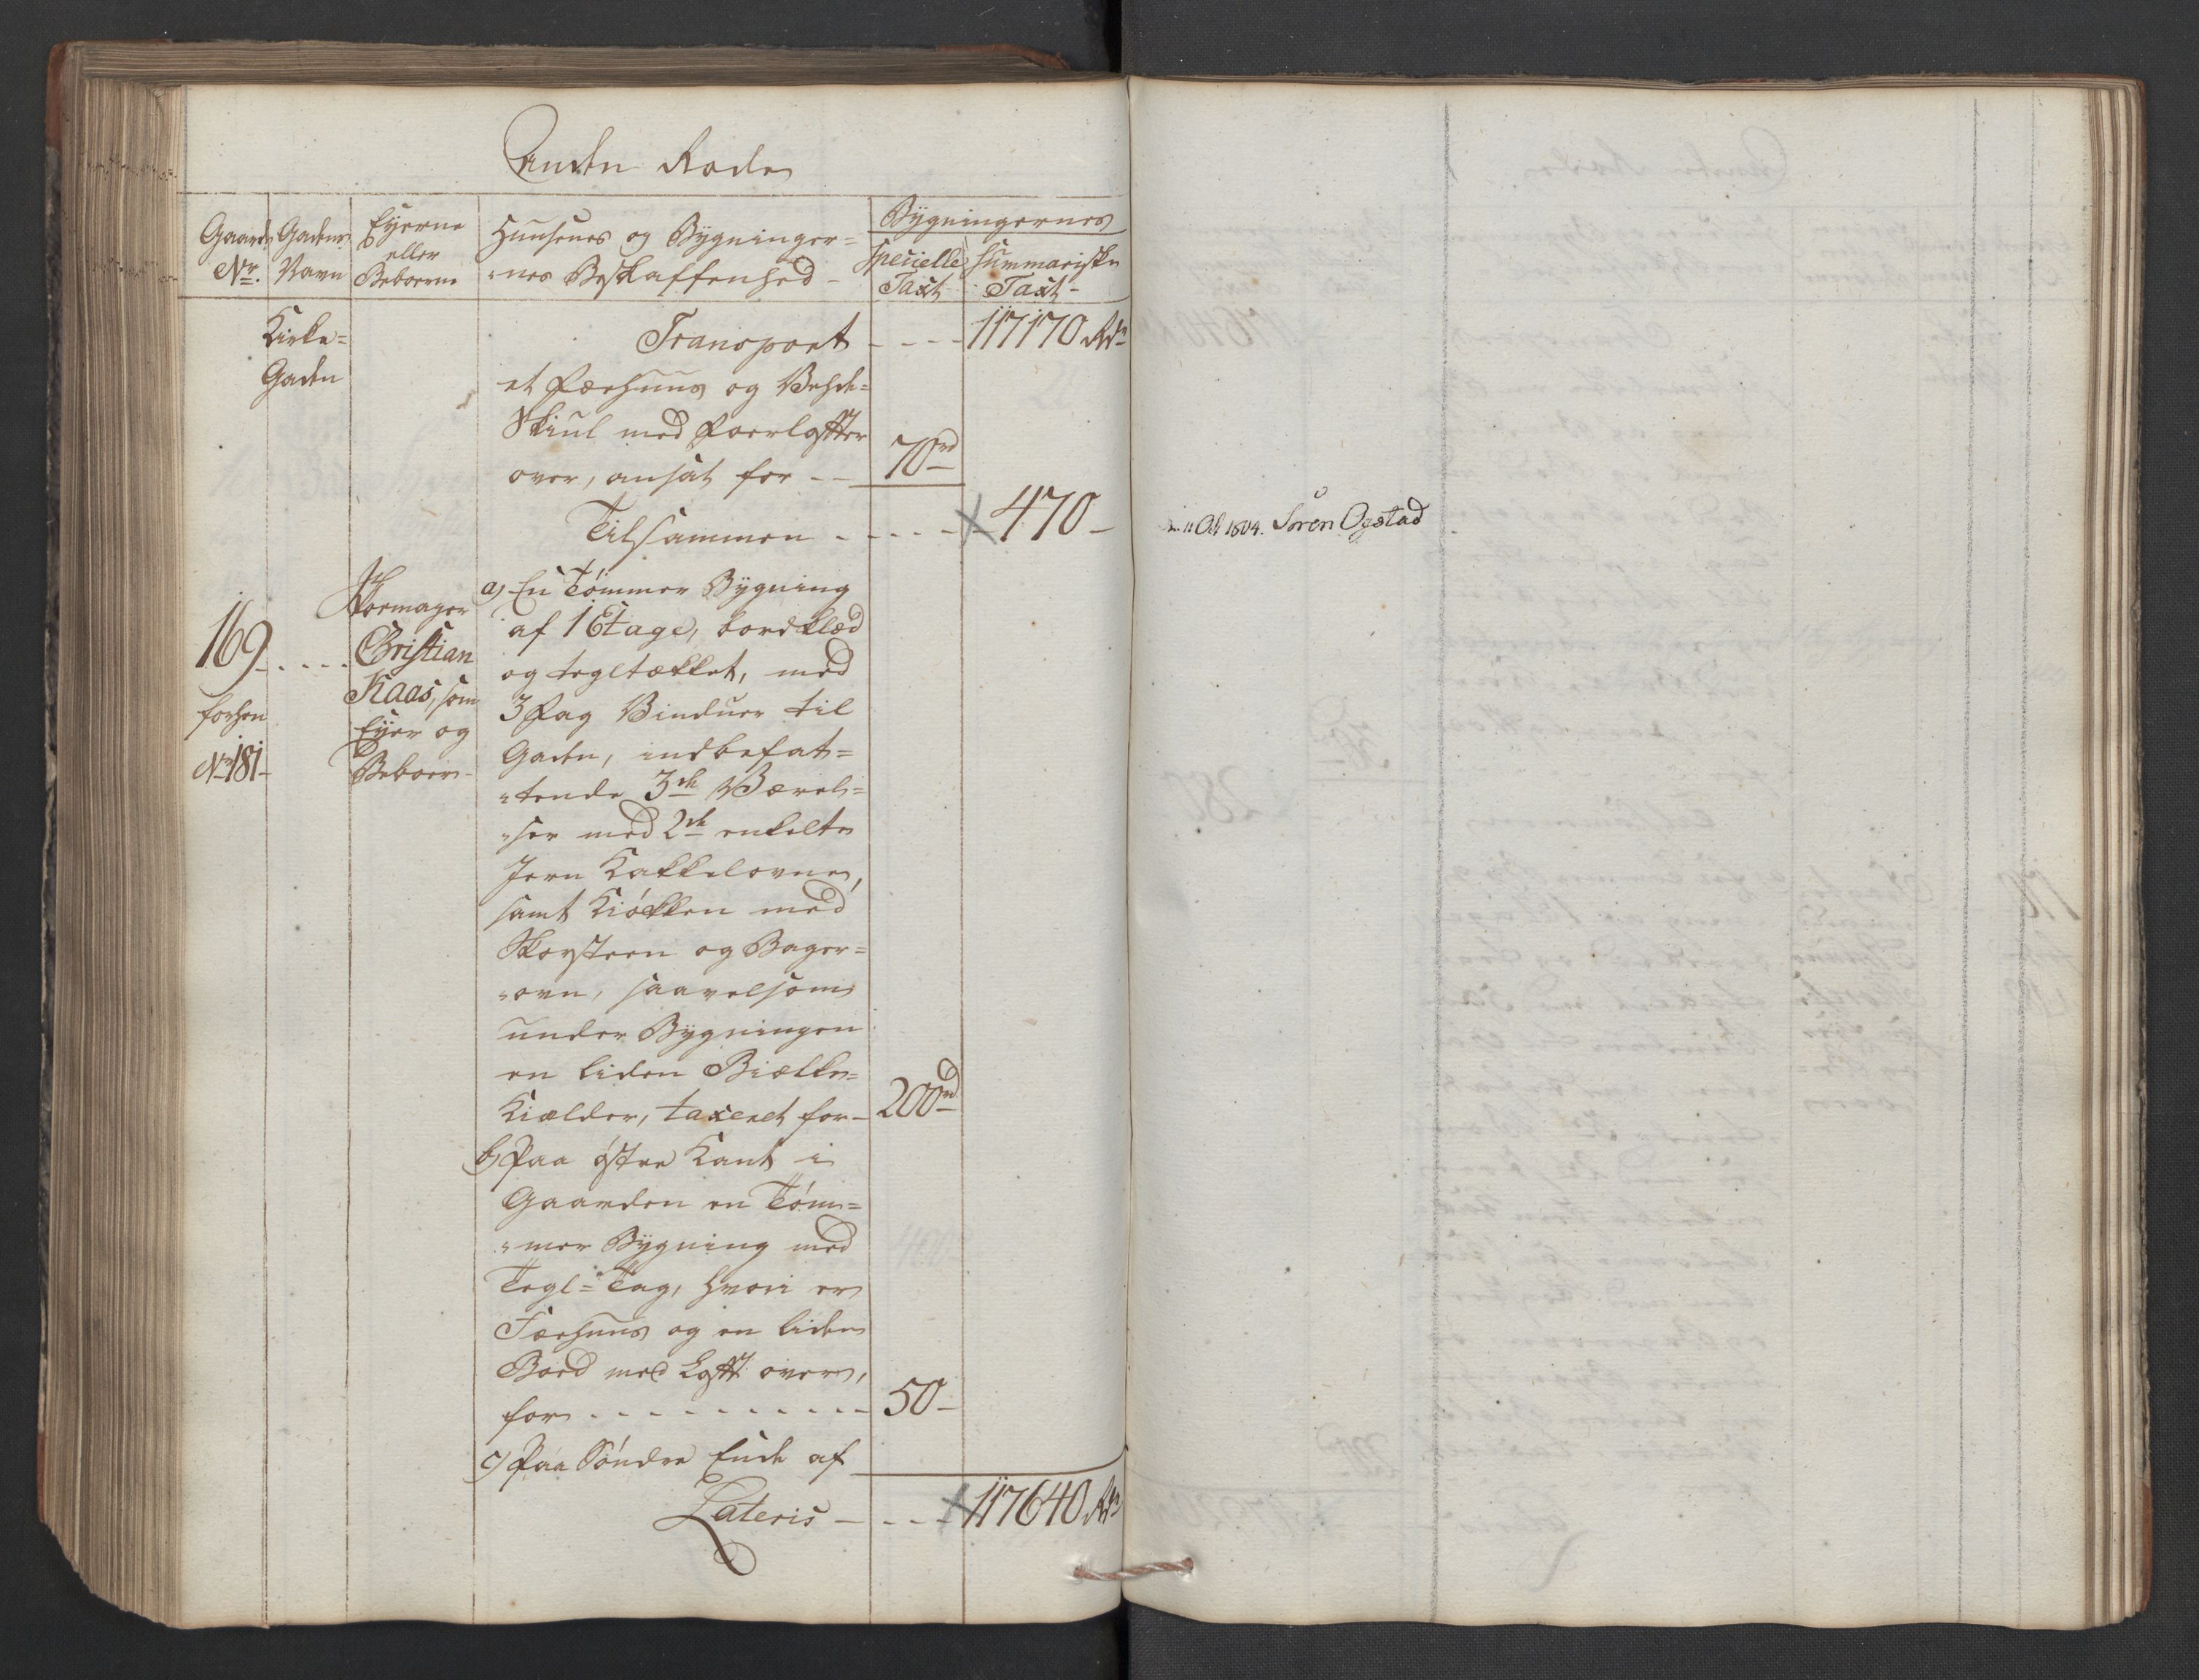 Anden Rode
Gaards Nr.
Gadens Navn
Eyerne eller Beboerne
Huusenes og Bygninger=
„nes Beskaffenhed –
Bygningernes
Specielle Taxt
Summariske Taxt –
Kirke=
Gaden
Transport - - - - 117170 Rdr
et Færhuus og Vehde=
Skiul med Foerlofter
over, ansat for - - 70rd
Tilsammen - - - - - 470 –
169 - - - -
forhen
Nr 181 –
Skoemager
Christian
Kaas, som
Eyer og
Beboer –
a) En Tømmer Bygning
af 1 Etage, bordklæd
og tegltækket, med
3 Fag Vinduer til
Gaden, indbefat=
„tende 3de Værel=
„ser med 2de enkelte
Jern Kakkelovne,
samt Kiøkken med
Skorsteen og Bager=
„ovn, saavelsom
under Bygningen
en liden Bielke=
Kielder, taxeret for – 200rd
b) Paa østre Kant i
Gaarden en Tøm=
„mer Bygning med
Tegl=Tag, hvori er
Færhuus og en liden
Boed med Loft over,
for - - - - - - - - - - 50 –
c) Paa Søndre Ende af
Lateris – - - - 117640 Rdr
11 Oct 1804. Sören Ogstad